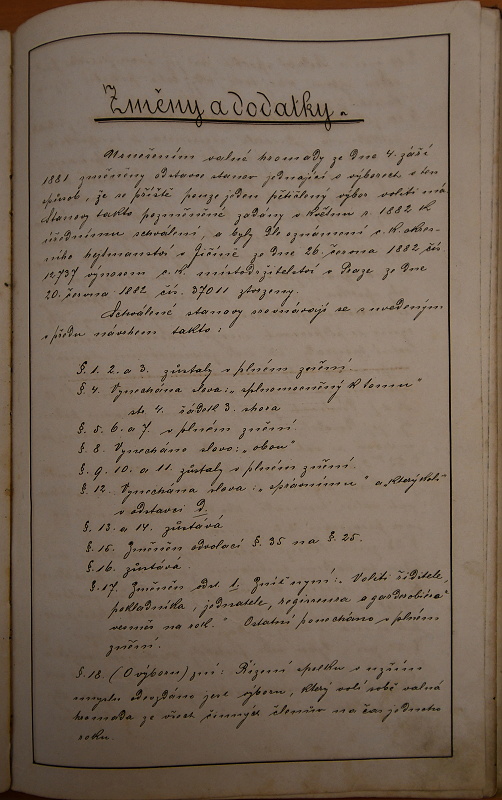 Změny a dodatky.
Usnešením valné hromady ze dne 4. září
1881 změněny odstavce stanov jednající o výborech v ten
způsob, že se příště pouze jeden pětičlený výbor voliti má.
Stanovy takto pozměněné zadány v květnu r. 1882 k
úřednímu schválení, a byly dle oznámení c. k. okres-
ního hejtmanství v Jičíně ze dne 26. června 1882 čís.
12737 výnosem c. k. místodržitelství v Praze ze dne
20. června 1882 čís. 37011 stvrzeny.
Schválené stanovy srovnávají se s uvedeným
v předu návrhem takto:
§. 1. 2. a 3. zůstaly v plném znění.
§. 4. Vynechána slova: „splnomocněný k tomu“
str. 4. řádek 3. shora
§. 5. 6. a 7. v plném znění.
§. 8. Vynecháno slovo: „obou“
§. 9. 10. a 11. zůstaly v plném znění.
§. 12. Vynechána slova: „správnímu“ a „kterýkoli“
v odstavci d.
§. 13. a 14. zůstává
§. 15. Změněn odvolací §. 35 na §. 25.
§. 16. zůstává.
§. 17. Změněn odst. 1. Zní nyní: „Voliti ředitele,
pokladníka, jednatele, regisseura a gardrobiera
vesměs na rok.“ Ostatní ponecháno v plném
znění.
§. 18. (O výboru) zní: Řízení spolku v užším
smyslu odevzdáno jest výboru, který volí sobě valná
hromada ze všech činných členův na čas jednoho
roku.